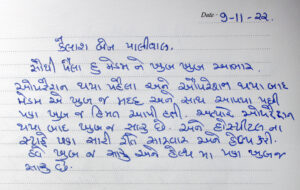 Date 9-11-22.
કૈલાશ બેન પાલીવાલ.
સૌથી પેલા હુ મેડમ ને ખુબ ખુબ આભાર
ઓપરેશન થયા પહેલા અને ઓપરેશન થયા બાદ
મેડમ એ ખુબ જ મદદ અને સાથ આપ્યો પછી
પણ ખુબ જ હિંમત આપી હતી. અત્યારે ઓપરેશન
થયા બાદ ખુબ જ સારૂ છે. અને હોસ્પીટલ ના
સ્ટાફે પણ સારી રીતે સારવાર અને હેલ્પ કરી.
હવે ખુબ જ સારૂ અને હેલ્થ માં પણ ખુબજ
સારૂ છે.